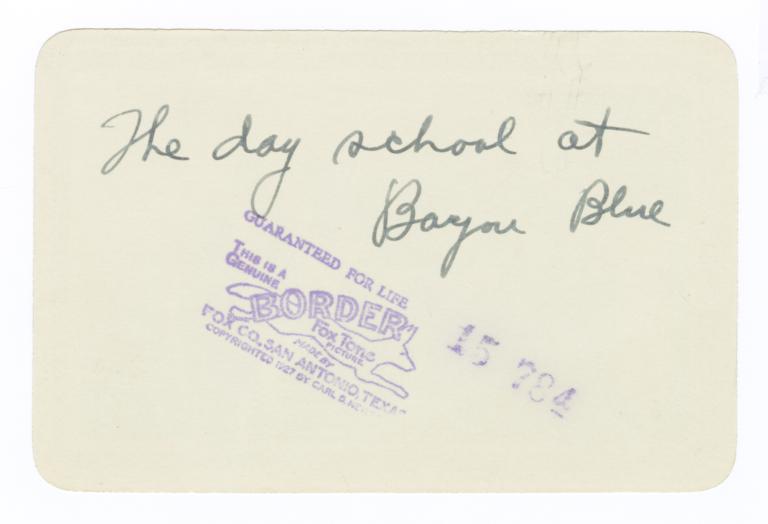 The day school at
Bayou Blue
GUARANTEED FOR LIFE
THIS IS A
GENUINE
BORDER
Fox Tone
PICTURE
MADE BY
FOX CO. SAN ANTONIO, TEXAS
COPYRIGHTED 1927 BY CARL D.
15 784